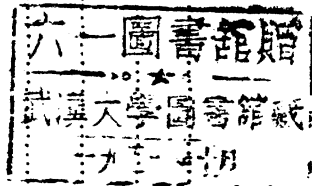 六一圖書舘贈
武漢大學圖書舘藏